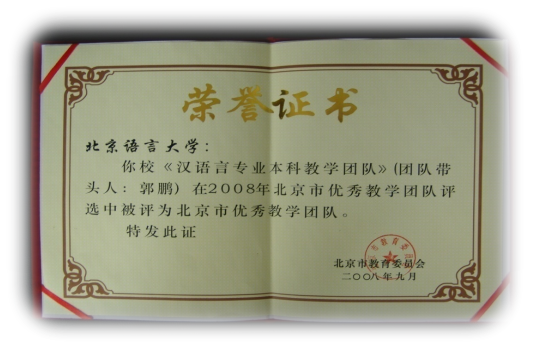 荣誉证书
北京语言大学：
你校《汉语言专业本科教学团队》(团队带
头人：郭鹏）在2008年北京市优秀教学团队评
选中被评为北京市优秀教学团队。
特发此证
北京市教育委员会
二〇〇八年九月